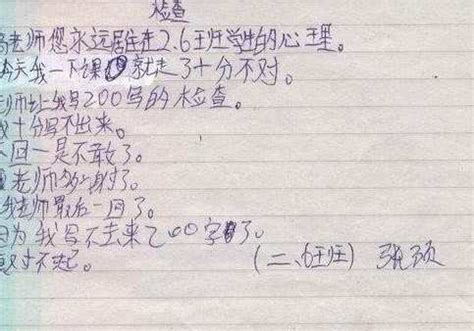 检查
老师您永远居住走2.6班学生的心理。
今天我一下课就走了十分不对。
老师让我写200写的检查。
我十分写不出来。
回一是不敢了。
老师多谢了。
老师最后一回了。
因为我写不去来200字了。
对不起。
(二、6班) 张